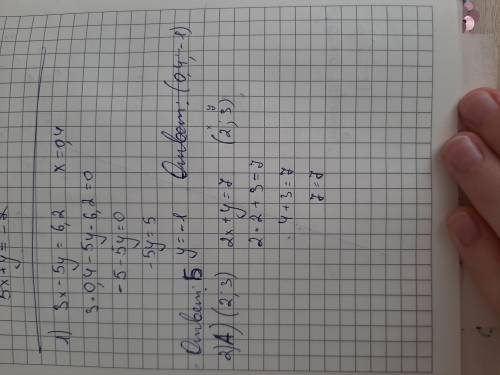 5x+y=-7
1) 3x-5y=6,2 x=0,4
3·0,4-5y-6,2=0
-5-5y=0
-5y=5
y=-1 Ответ: (0,4; -1)
Ответ: Б
2) А) (2; 3) 2x+y=7 (2; 3)
x y
2·2+3=7
4+3=7
7=7